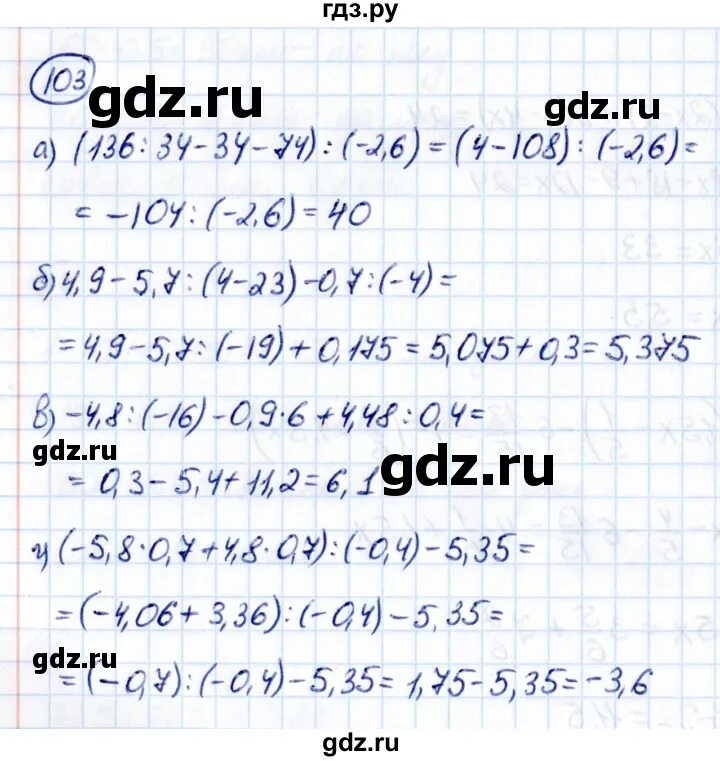 гдз.ру
103
gdz.ru
gdz.ru
а) (136:34-34-74):(-2,6)=(4-108):(-2,6)=
=-104:(-2,6)=40
б) 4,9-5,7:(4-23)-0,7:(-4)=
=4,9-5,7:(-19)+0,175=5,075+0,3=5,375
в) -4,8:(-16)-0,9·6+4,48:0,4=
gdz.ru
gdz.ru
=0,3-5,4+11,2=6,1
г) (-5,8·0,7+4,8·0,7):(-0,4)-5,35=
=(-4,06+3,36):(-0,4)-5,35=
gdz.ru
=(-0,7):(-0,4)-5,35=1,75-5,35=-3,6
gdz.ru